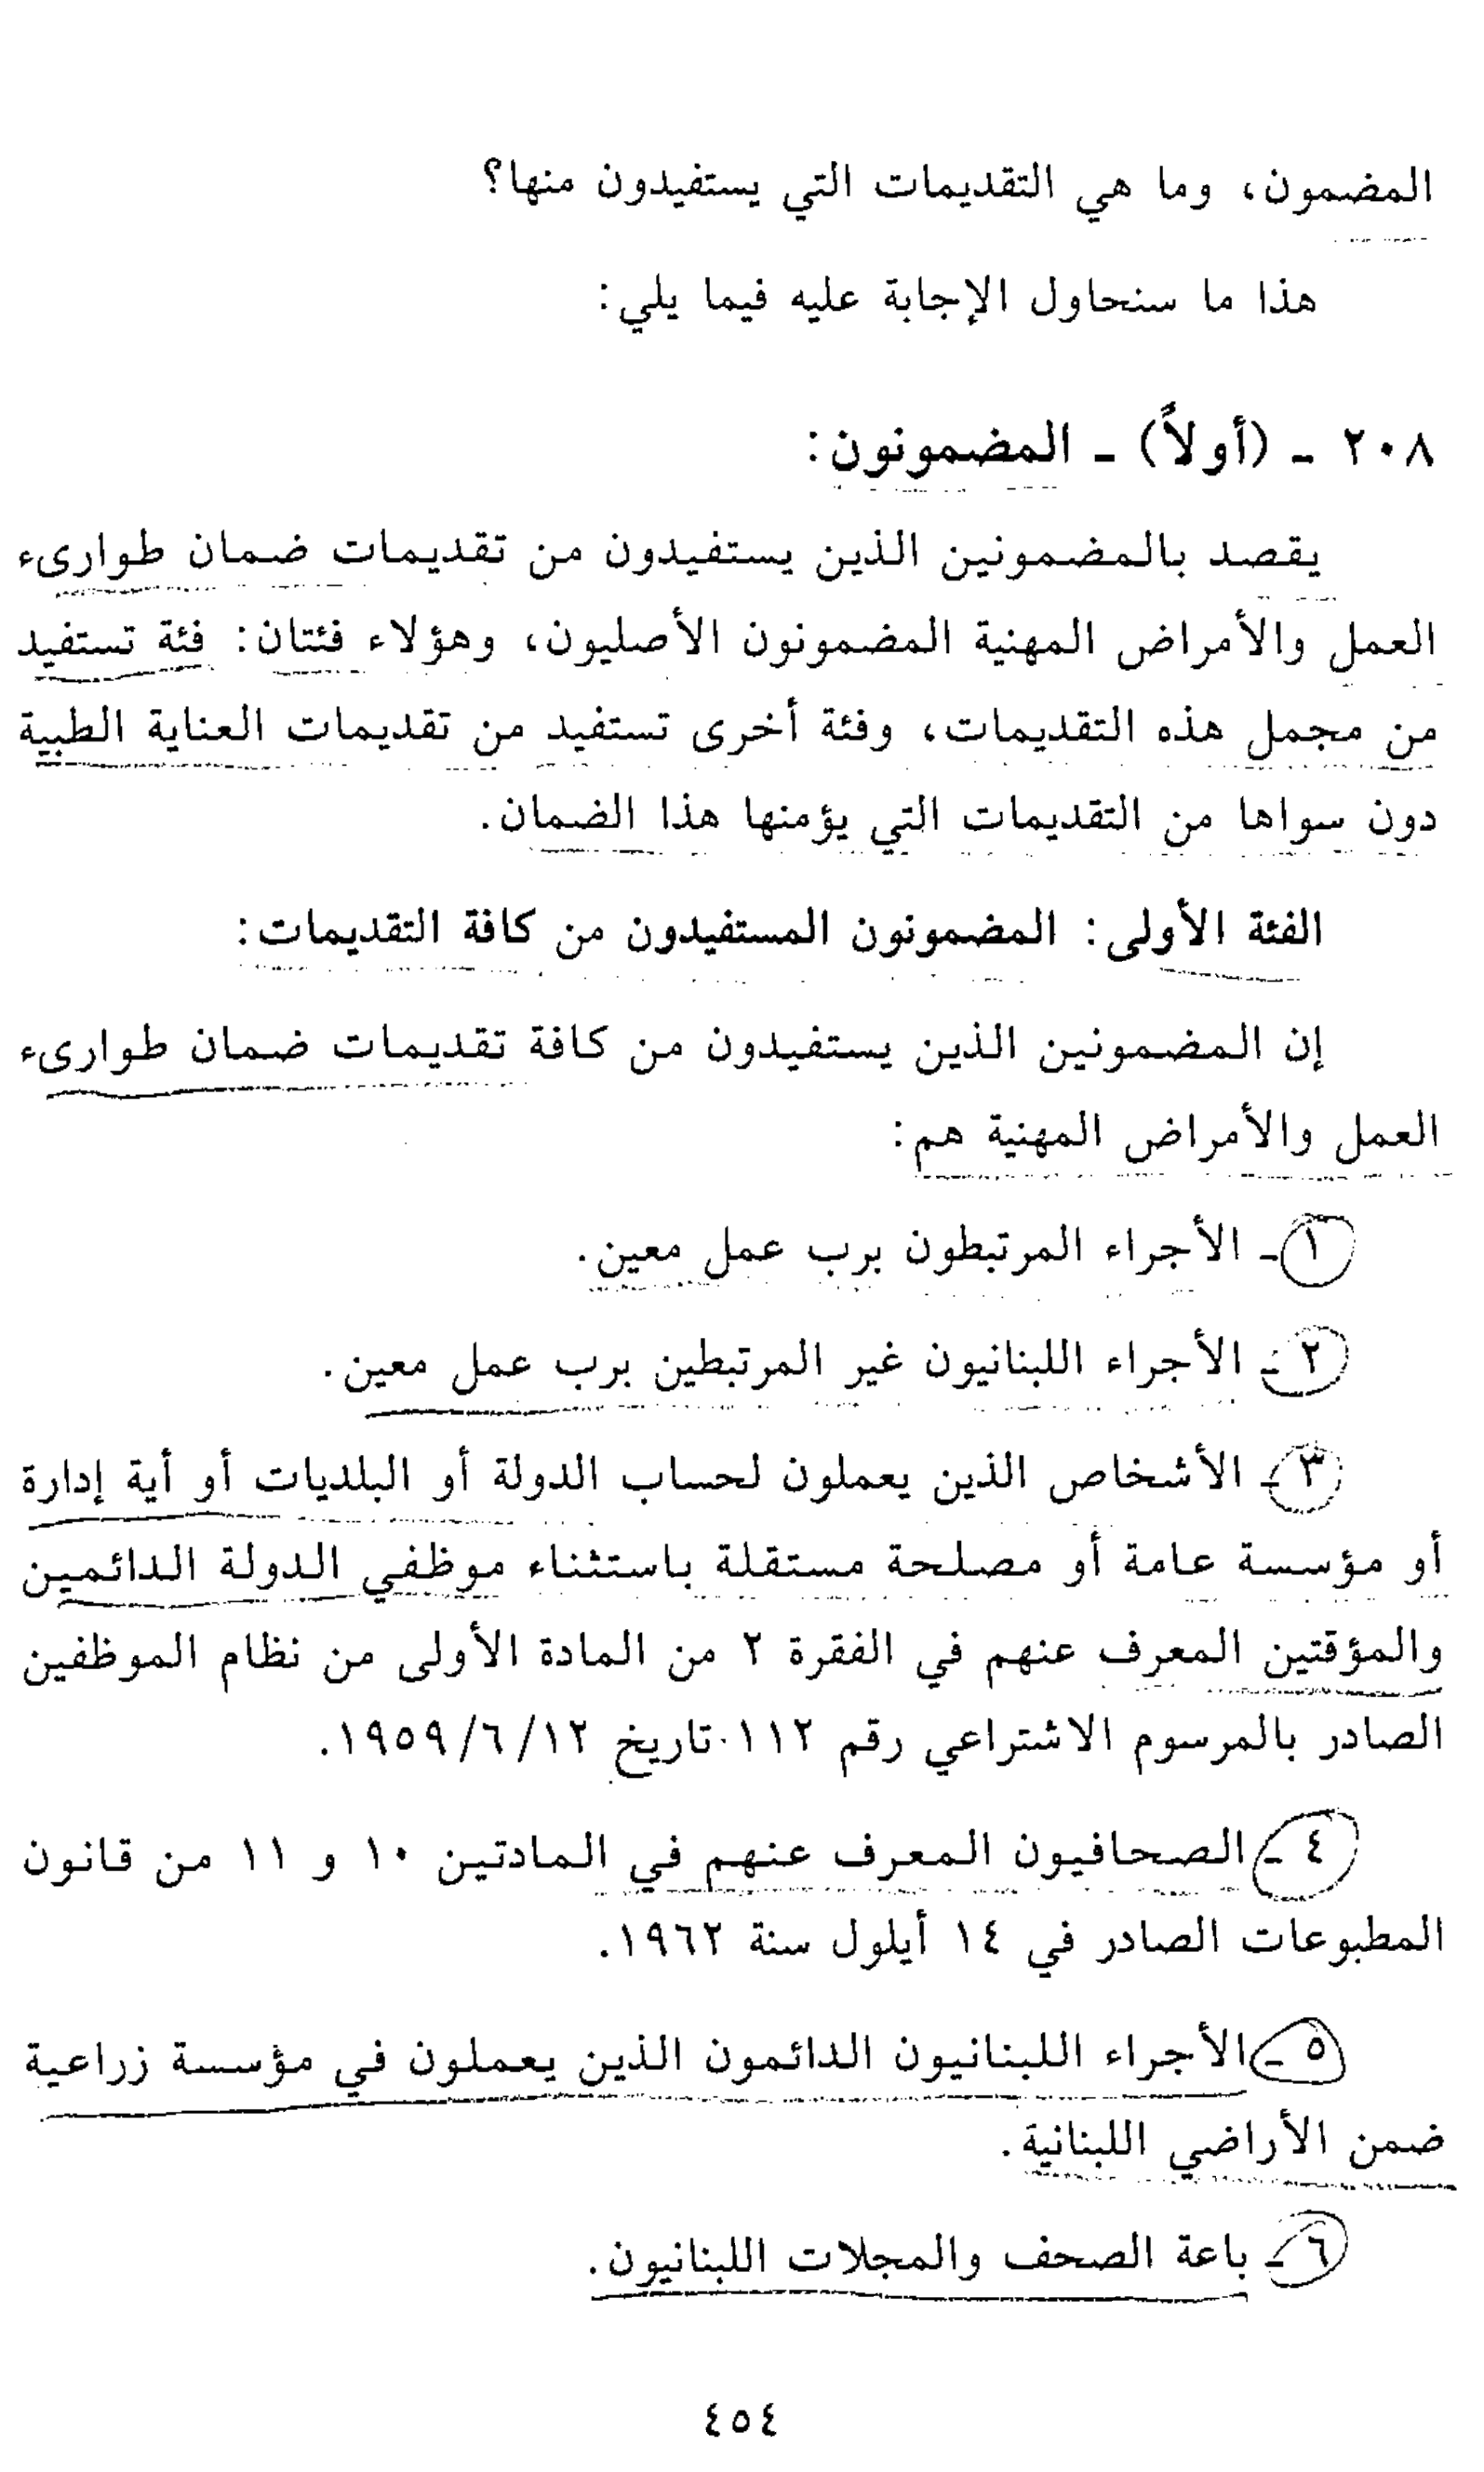 المضمون، وما هي التقديمات التي يستفيدون منها؟
هذا ما سنحاول الإجابة عليه فيما يلي:
٢٠٨ - (أولاً) - المضمونون:
يقصد بالمضمونين الذين يستفيدون من تقديمات ضمان طوارىء
العمل والأمراض المهنية المضمونون الأصليون، وهؤلاء فئتان: فئة تستفيد
من مجمل هذه التقديمات، وفئة أخرى تستفيد من تقديمات العناية الطبية
دون سواها من التقديمات التي يؤمنها هذا الضمان.
الفئة الأولى: المضمونون المستفيدون من كافة التقديمات:
إن المضمونين الذين يستفيدون من كافة تقديمات ضمان طوارىء
العمل والأمراض المهنية هم:
١ - الأجراء المرتبطون برب عمل معين.
٢ - الأجراء اللبنانيون غير المرتبطين برب عمل معين.
٣ - الأشخاص الذين يعملون لحساب الدولة أو البلديات أو أية إدارة
أو مؤسسة عامة أو مصلحة مستقلة باستثناء موظفي الدولة الدائمين
والمؤقتين المعرف عنهم في الفقرة ٢ من المادة الأولى من نظام الموظفين
الصادر بالمرسوم الاشتراعي رقم ١١٢ تاريخ ١٩٥٩/٦/١٢.
٤ - الصحافيون المعرف عنهم في المادتين ١٠ و ١١ من قانون
المطبوعات الصادر في ١٤ أيلول سنة ١٩٦٢.
٥ - الأجراء اللبنانيون الدائمون الذين يعملون في مؤسسة زراعية
ضمن الأراضي اللبنانية.
٦ - باعة الصحف والمجلات اللبنانيون.
٤٥٤